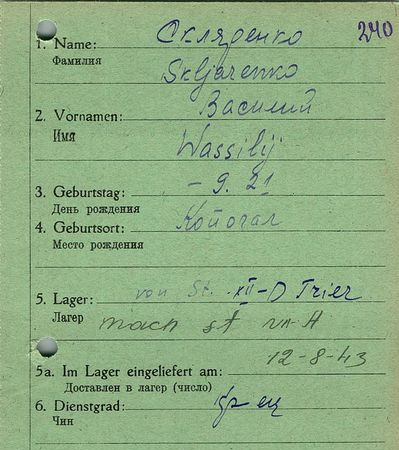 Скляренко 240
1. Name:
Фамилия
Skljarenko
Василий
2. Vornamen:
Имя
Wassilij
3. Geburtstag: – 9. 21
День рождения
4. Geburtsort:
Место рождения
5. Lager: von St. XII-D Trier
Лагер
nach St VII-A
5a. Im Lager eingeliefert am: 12-8-43
Доставлен в лагер (число)
6. Dienstgrad:
Чин